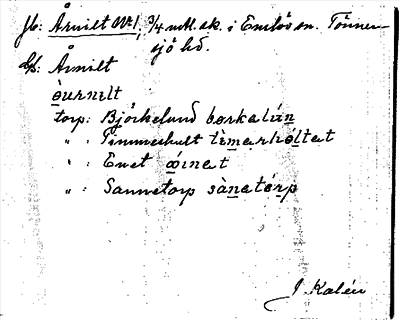 jb: Årnilt No 1, 3/4 mtl. sk. i Enslöv sn. Tönner-
sjö hd.
Uf: Årnilt
òurnilt
torp: Björkelund børkalún
" : Timmerhult tìmarhøltat
" : Enet øínat
" : Sannetorp sànatórp
J. Kalén